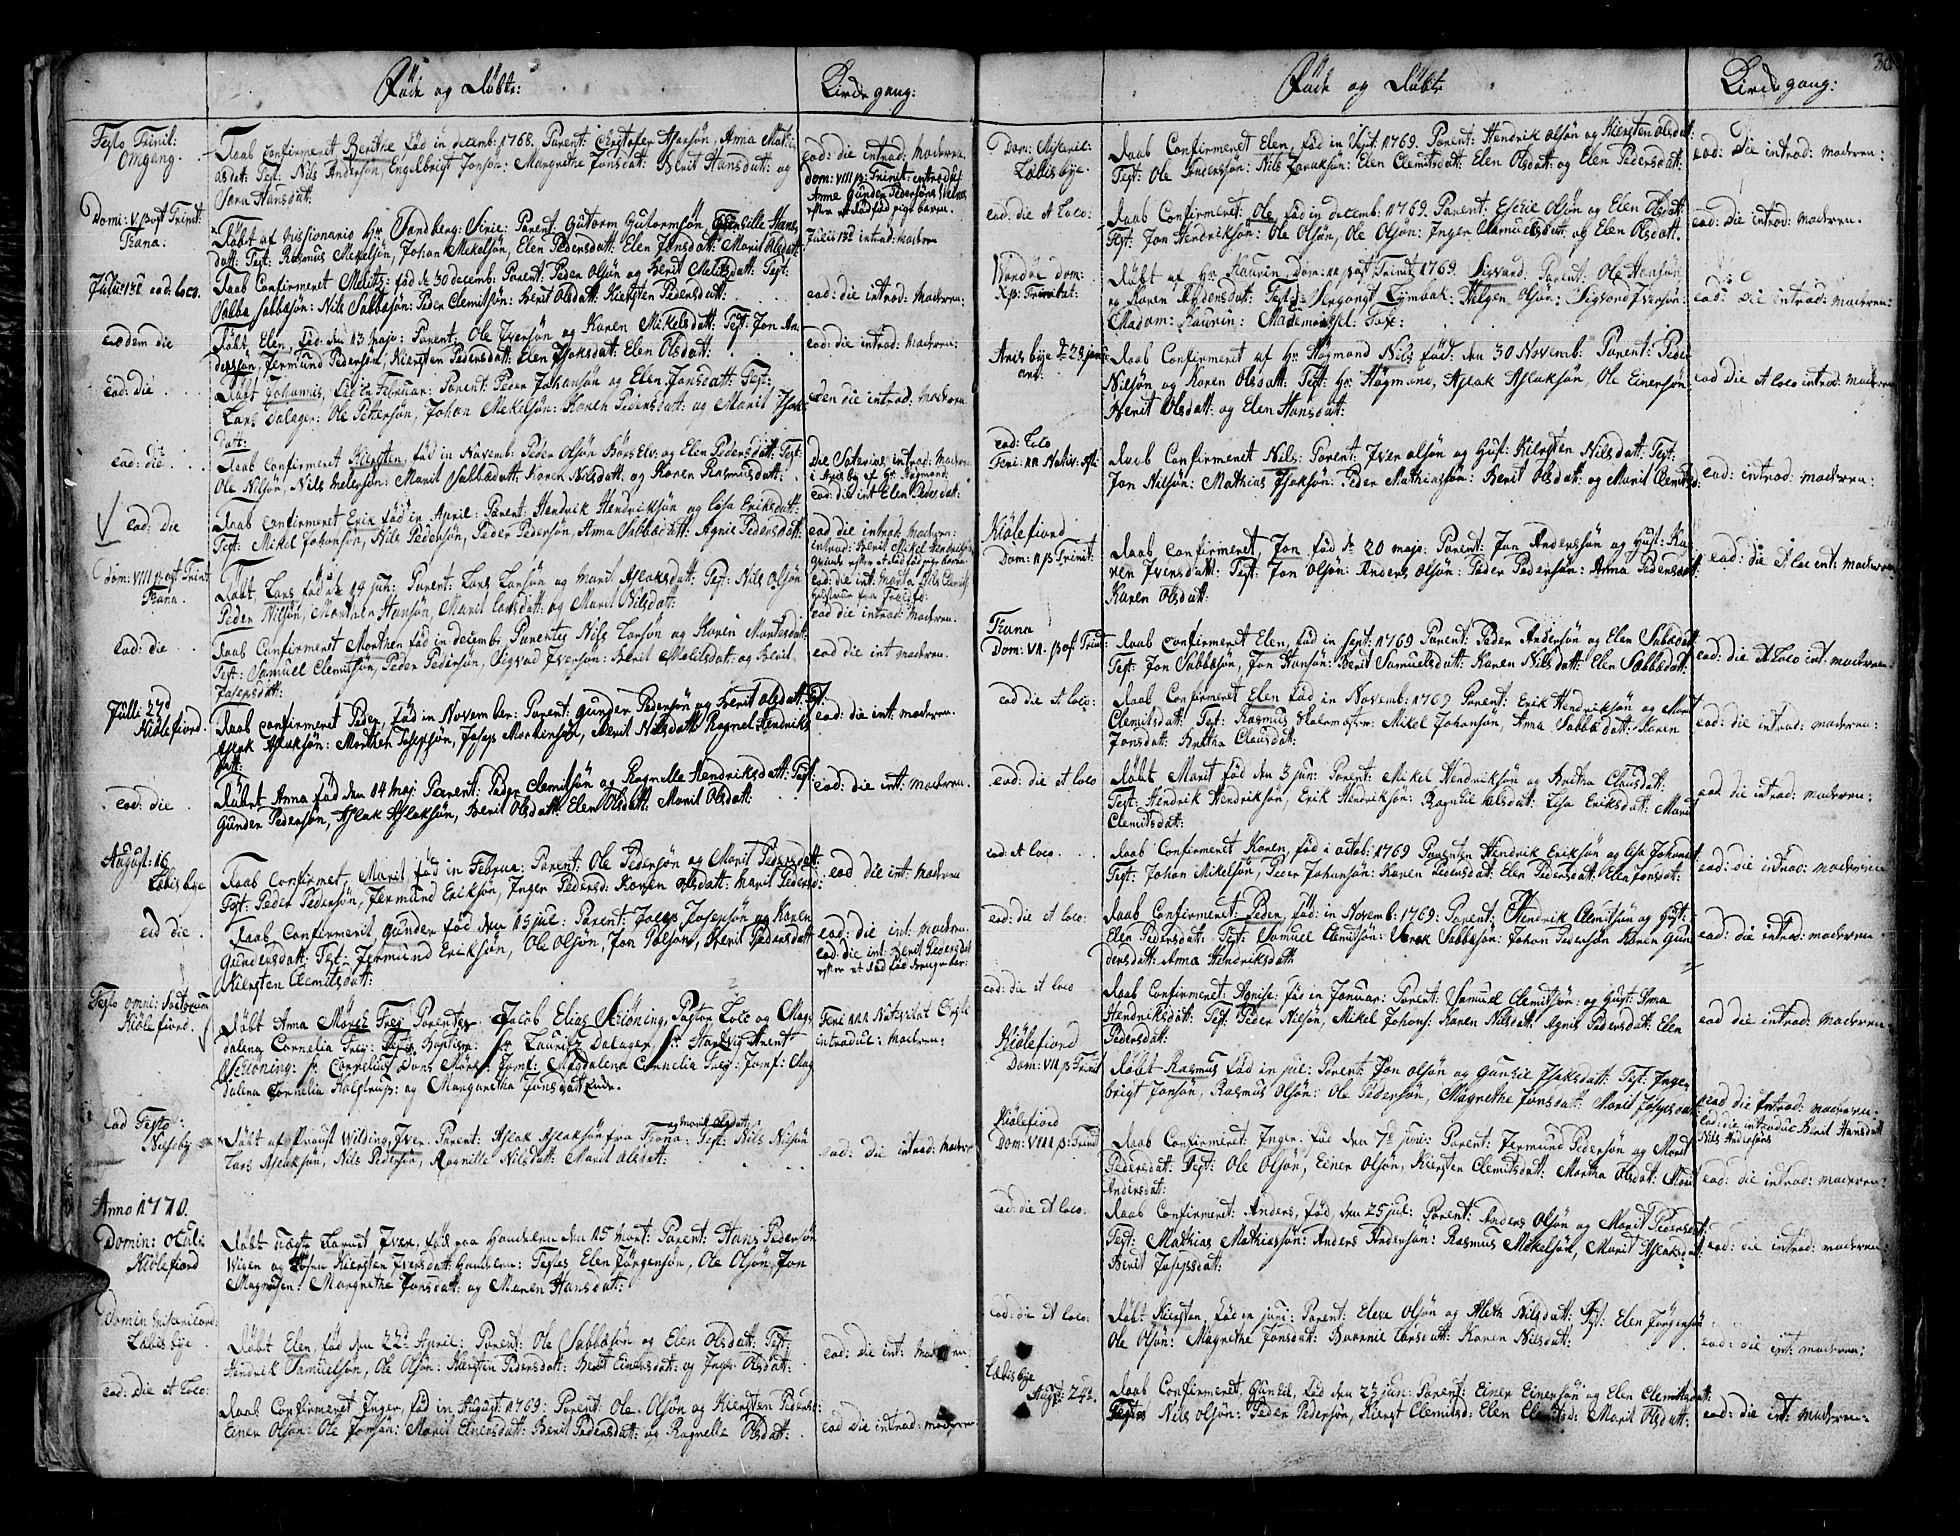 Föde og Döbte:
Kirke gang:
Festo Trinit:
Omgang.
Daab Confirmeret Berthe föd in decemb: 1768. Parent:
Test: Nils Andersön, Engelbrigt Jonsön: Margrethe Jonsdatt: Berit Hansdatt: og
Hansdatt:
eod: die introd: moderen.
dom: VIII p: Trinit:
Anne Gunder Pedersöns
Domi: V post Trinit:
Tana:
Döbt af Missionario Hr. Sandberg: Sirie: Parent: Gutorm Gutormsön,
datt: Test: Rasmus Mekelsön, Johan Mekelsön, Elen Pedersdatt: Elen Jonsdatt: Marit Olsdatt:
introd: moderen
eod: loco.
Daab Confirmeret Melits: föd d: 30 decemb: Parent: Peder Olsön og Berit Melitsdatt: Test:
Sabba Sabbasön: Nils Sabbasön: Peder Clemitsön: Berit Olsdatt: Kiersten Pedersdatt:
eod: die introd: Moderen:
eodem die
Döbt, Elen, föd den 13 maji: Parent: Ole Iversön og Karen Mikelsdatt: Test: Jon An
dersön, Jermund Pedersön, Kiersten Pedersdatt: Elen Isaksdat: Elen Olsdatt:
eod: die introd: Moderen:
eod: die
Döbt Johannis, föd in Februar: Parent: Peder Johansön og Elen Jonsdatt: Test:
Lars Dalager: Ole Pettersön, Johan Mekelsön: Karen Pedersdatt: og Marit Isak
datt:
die introd: Moderen.
eod: die
Daab Confirmeret Kiersten, föd in Novemb: Peder Olsön Börs Elv: og Elen Pedersdatt: Test:
Ole Nilsön, Nils Melersön: Marit Sabbadatt: Karen Nilsdatt: og Karen Rasmusdatt:
introd: Moderen
eod: die int Elen Pedersdat:
eod: die
Daab Confirmeret Erik föd in April: Parent: Hendrik Hendriksön og Lisa Eriksdatt:
Test: Mikel Johansön, Nils Pedersön, Peder Pedersön, Anna Sabbadatt: Agnis Pedersdatt:
eod die introd: Moderen:
dom: VIII post Trinit
Tana:
Döbt Lars föd d: 14 jun: Parent: Lars Larsön og Marit Aslaksdatt: Test: Nils Olsön
Peder Nilsön, Morten Hansön, Marit Larsdatt: og Marit Nilsdatt:
eod die introd: Moderen.
eod: die
Daab Confirmeret Morthen föd in decemb: Parentes Nils Larsön og Karen Mortesdatt:
Test: Samuel Clemitsön, Peder Pedersön, Sigvad Iversön: Berit Melitsdat: og Berit
Josepsdatt:
eod die int Moderen.
Julii 27d
Kiölefiord.
Daab Confirmeret Peder, föd in November: Parent: Gunder Pedersön og Berit Olsdatt: Test.
Aslak Aslaksön: Morthen Josepsön, Joseps Mortensön, Berit Nilsdatt: Ragnel Hendriks
datt:
eod: die int: Moderen.
eod: die
Döbt Anna föd den 14 maj: Parent: Peder Clemitsön og Ragnelle Hendriksdatt: Test:
Gunder Pedersön, Aslak Aslaksön, Berit Olsdatt: Elen Olsdatt: Marit Olsdatt:
eod: die int: Moderen.
August: 16
Lebis bye
Daab Confirmet, Marit föd in Februa: Parent: Ole Pedersön og Marit Pedersdatt:
Test: Peder Pedersön, Jermund Eriksön, Inger Pedersd: Karen Olsdatt: Marit Pedersd:
eod die int: Moderen
eod die.
Daab Confirmerit, Gunder föd den 15 jul: Parent: Joseps Josepsön og Karen
Gundersdatt: Test: Jermund Eriksön, Ole Olsön, Jon Polsön, Berit Pedersdatt
Kiersten Clemitsdatt:
eod: die int. Moderen
eod: die int: Berit Pedersdat
Festo omni: Sanctorum
Kiölefiord.
Döbt Anna Mörch Frej Parentes Jacob Elias Skiöning, Pastor Loco og Mag
dalena Cornelia Frej: Testes Baptism: Hr Lauritz Dalager: Hr. Hartvig Arent
Skiöning: Sr. Cornelius Dons Mörs: Jomf: Magdalena Cornelia Frej: Jomf: Mag
dalena Cornelia Kalstrup: og Margaretha Jonsdatt
Feri: Nativitat Cristi
introduc: Moderen:
Eod Festo:
Nusseby
Döbt af Proust Wilding, Iver. Parent: Aslak Aslaksön fra Tana: og Marit Olsdat: Test: Nils Nilsön
Lars Aslaksön, Nils Pedersön, Ragnille Nilsdatt: Marit Olsdatt:
eod: die introd: Moder
Anno 1770.
Domin: Oculi
Kiölefiord
Döbt uægte Barnet Iver, föd paa Handelen den 15 Mart: Parent: Hans Pedersön
Wigen og Kiersten Iversdatt: Handelen: Testes Elen Jörgensön, Ole Olsön, Jon
Magnusen: Margrethe Jonsdatt: og Maren Hansdat:
Domin Misericord:
Lebis bye
Döbt Elen föd den 22d April: Parent: Ole Sabbasön og Elen Olsdatt: Test:
Hendrik Samuelsön, Ole Olsön: Kiersten Pedersdatt: Berit Einersdatt: og Inger Olsdatt:
eod: die int: Moderen:
eod: die et Loco:
Daab Confirmeret Inger, föd in August: 1769: Parent: Ole Olsön og Kiersten Pedersd:
Einer Olsön: Ole Jonsön: Marit Einersdatt: Berit Pedersdatt: og Ragnelle Olsdatt:
eod die introd: moderen
30
Föde og Döbte
Kirke gang:
Dom: Miseric:
Lebis bye.
Daab Confirmeret Elen, föd in 1769. Parent: Hendrik Olsön og Kiersten Olsdat:
Test: Ole Andersön: Nils Zarakssön: Elen Clemitsdatt: Elen Olsdatt: og Elen Pedersdatt:
eod: Die introd: moderen:
eod: die et Loco:
Daab Confirmeret: Ole, föd in decemb: 1769. Parent: Eskil Olsön og Elen Olsdat:
Test: Jon Hendriksön: Ole Olsön, Ole Olsön: Inger Samuelsdatt og Elen Olsdatt.
eod: die introd: Moderen.
Vardöe dom:
XI p: Trinitat:
Döbt af Hr. Kaurin, Dom: 11 post Trinit: 1769. Sigvard: Parent: Ole Hansön
og Karen Andersdat: Test: Sergeant Lymbak: Helgen Olsön: Sigvard Iversön:
Madam: Kaurin: Mademoisel:
eod: Die introd: Moderen:
Aris bye d: 29 jan:
Daab Confirmeret af Hr Högmand Nils föd: den 30 Novemb: Parent: Peder
Nilsön og Karen Olsdatt: Test: Hr: Högmand, Aslak Aslaksön, Ole Einersön
Berit Olsdatt: og Elen Hansdatt:
eod die et loco introd: Moderen
eod: Loco
Daab Confirmeret Nils: Parent: Iver Olsön og Hust: Kiersten Nilsdatt: Test:
Jon Nilsön: Mathias Isaksön: Peder Mathiassön: Berit Olsdat: og Marit Clemitsd:
eod: die introd: Moderen:
Kiölefiord
Dom: 11 p: Trinit:
Daab Confirmeret, Jon föd d: 20 maji: Parent: Jon Anderssön og Hust: Ka
ren Iversdatt: Test: Jon Olsön: Anders Olsön: Peder Pedersön: Anna Pedersdatt:
Karen Olsdatt:
eod: die et Loc int: moderen
Tana
Dom: VII. post Trinit:
Daab Confirmeret Elen, föd in Sept: 1769 Parent: Peder Andersön og Elen Sabbadatt:
Test: Jon Sabbasön, Jon Hansön: Berit Samuelsdatt: Karen Nilsdatt: Elen Sabbadatt:
eod: die et Loco int: moderen
eod die et loco:
Daab Confirmeret Elen föd in Novemb: 1769 Parent: Erik Hendriksön og Marit
Clemitsdatt: Test: Rasmus Skolemester: Mikel Johansön, Anna Sabbadatt: Karen
Jonsdatt: Bertha Clausdatt:
eod: die introd: Moderen:
eod: die et Loco
Döbt Marit föd den 3 jun: Parent: Mikel Hendriksön og Bertha Clausdatt:
Test: Hendrik Hendriksön, Erik Hendriksön: Ragnhil Olsdat: Lisa Eriksdatt: Marit
Clemitsdatt:
eod die introd: moderen:
eod: et Loco.
Daab Confirmeret Karen, föd i octob: 1769 Parenten Hendrik Eriksön og Lisa Johansdat
Test: Johan Mikelsön, Peder Johansön: Karen Pedersdat: Elen Pedersdat: Elen Jonsdat:
eod: die introd: moderen
eod: die et Loco:
Daab Confirmeret: Peder, föd: in Novemb: 1769: Parent: Hendrik Clemitsön og Hust:
Elen Pedersdat: Test: Samuel Clemitsön: Sabbasön: Johan Pedersön Karen Gun
dersdatt: Anna Hendriksdatt:
eod: die introd: moderen
eod: die et Loco
Daab Confirmeret: Agnise: föd in Januar: Parent: Samuel Clemitsön: og Hust: Anna
Hendriksdat: Test: Peder Nilsön, Mikel Johans: Karen Nilsdat: Agnis Pedersdat: Elen
Pedersdat:
eod die introd: Moderen
Kiölefiord
Dom: VII p: Trinit
Döbt Rasmus föd in jul: Parent: Jon Olsön og Gunhil Isaksdatt: Test: Ingen
brigt Jonsön, Rasmus Olsön: Ole Pedersön, Magrethe Jonsdatt: Marit Josepsdat:
eod die Introd: moderen.
eod: die introduc Berit Hansdatt
Nils Andersöns
Kiölefiord
Dom: VIII p: Trinit
Daab Confirmeret: Inger: föd den 7d juni: Parent: Jermund Pedersön og Marit
Pedersdat: Test: Ole Olsön, Einer Olsön, Kiersten Clemitsdat: Martha Olsdat: Marit
Andersdat:
eod: die introd: moderen:
eod: die et Loco.
Daab Confirmeret: Anders, föd den 25 jul: Parent: Anders Olsön og Marit Pedersdat:
Test: Mathias Mathiassön: Anders Andersön: Rasmus Mekelsön, Marit Aslaksdat:
Berit Josepsdat:
eod: die introd: moderen:
eod: die et Loco:
Döbt Kiersten, föd in juni: Parent: Eleve Olsön og Aleth Nilsdatt: Test: Elen Jörgensön
Ole Olsön: Magrethe Jonsdat: Larsdatt: Karen Nilsdat:
eod: die introd: moderen:
Lebis bye
Augt: 24d
Daab Confirmeret, Gunhil, föd den 23 jun: Parent: Einer Einersön og Elen Clemitsdatt:
Testes Nils Olsön: Peder Pedersön, Kierst Clemitsd: Elen Clemitsd: Marit Olsdatt:
eod: die int: moderen: